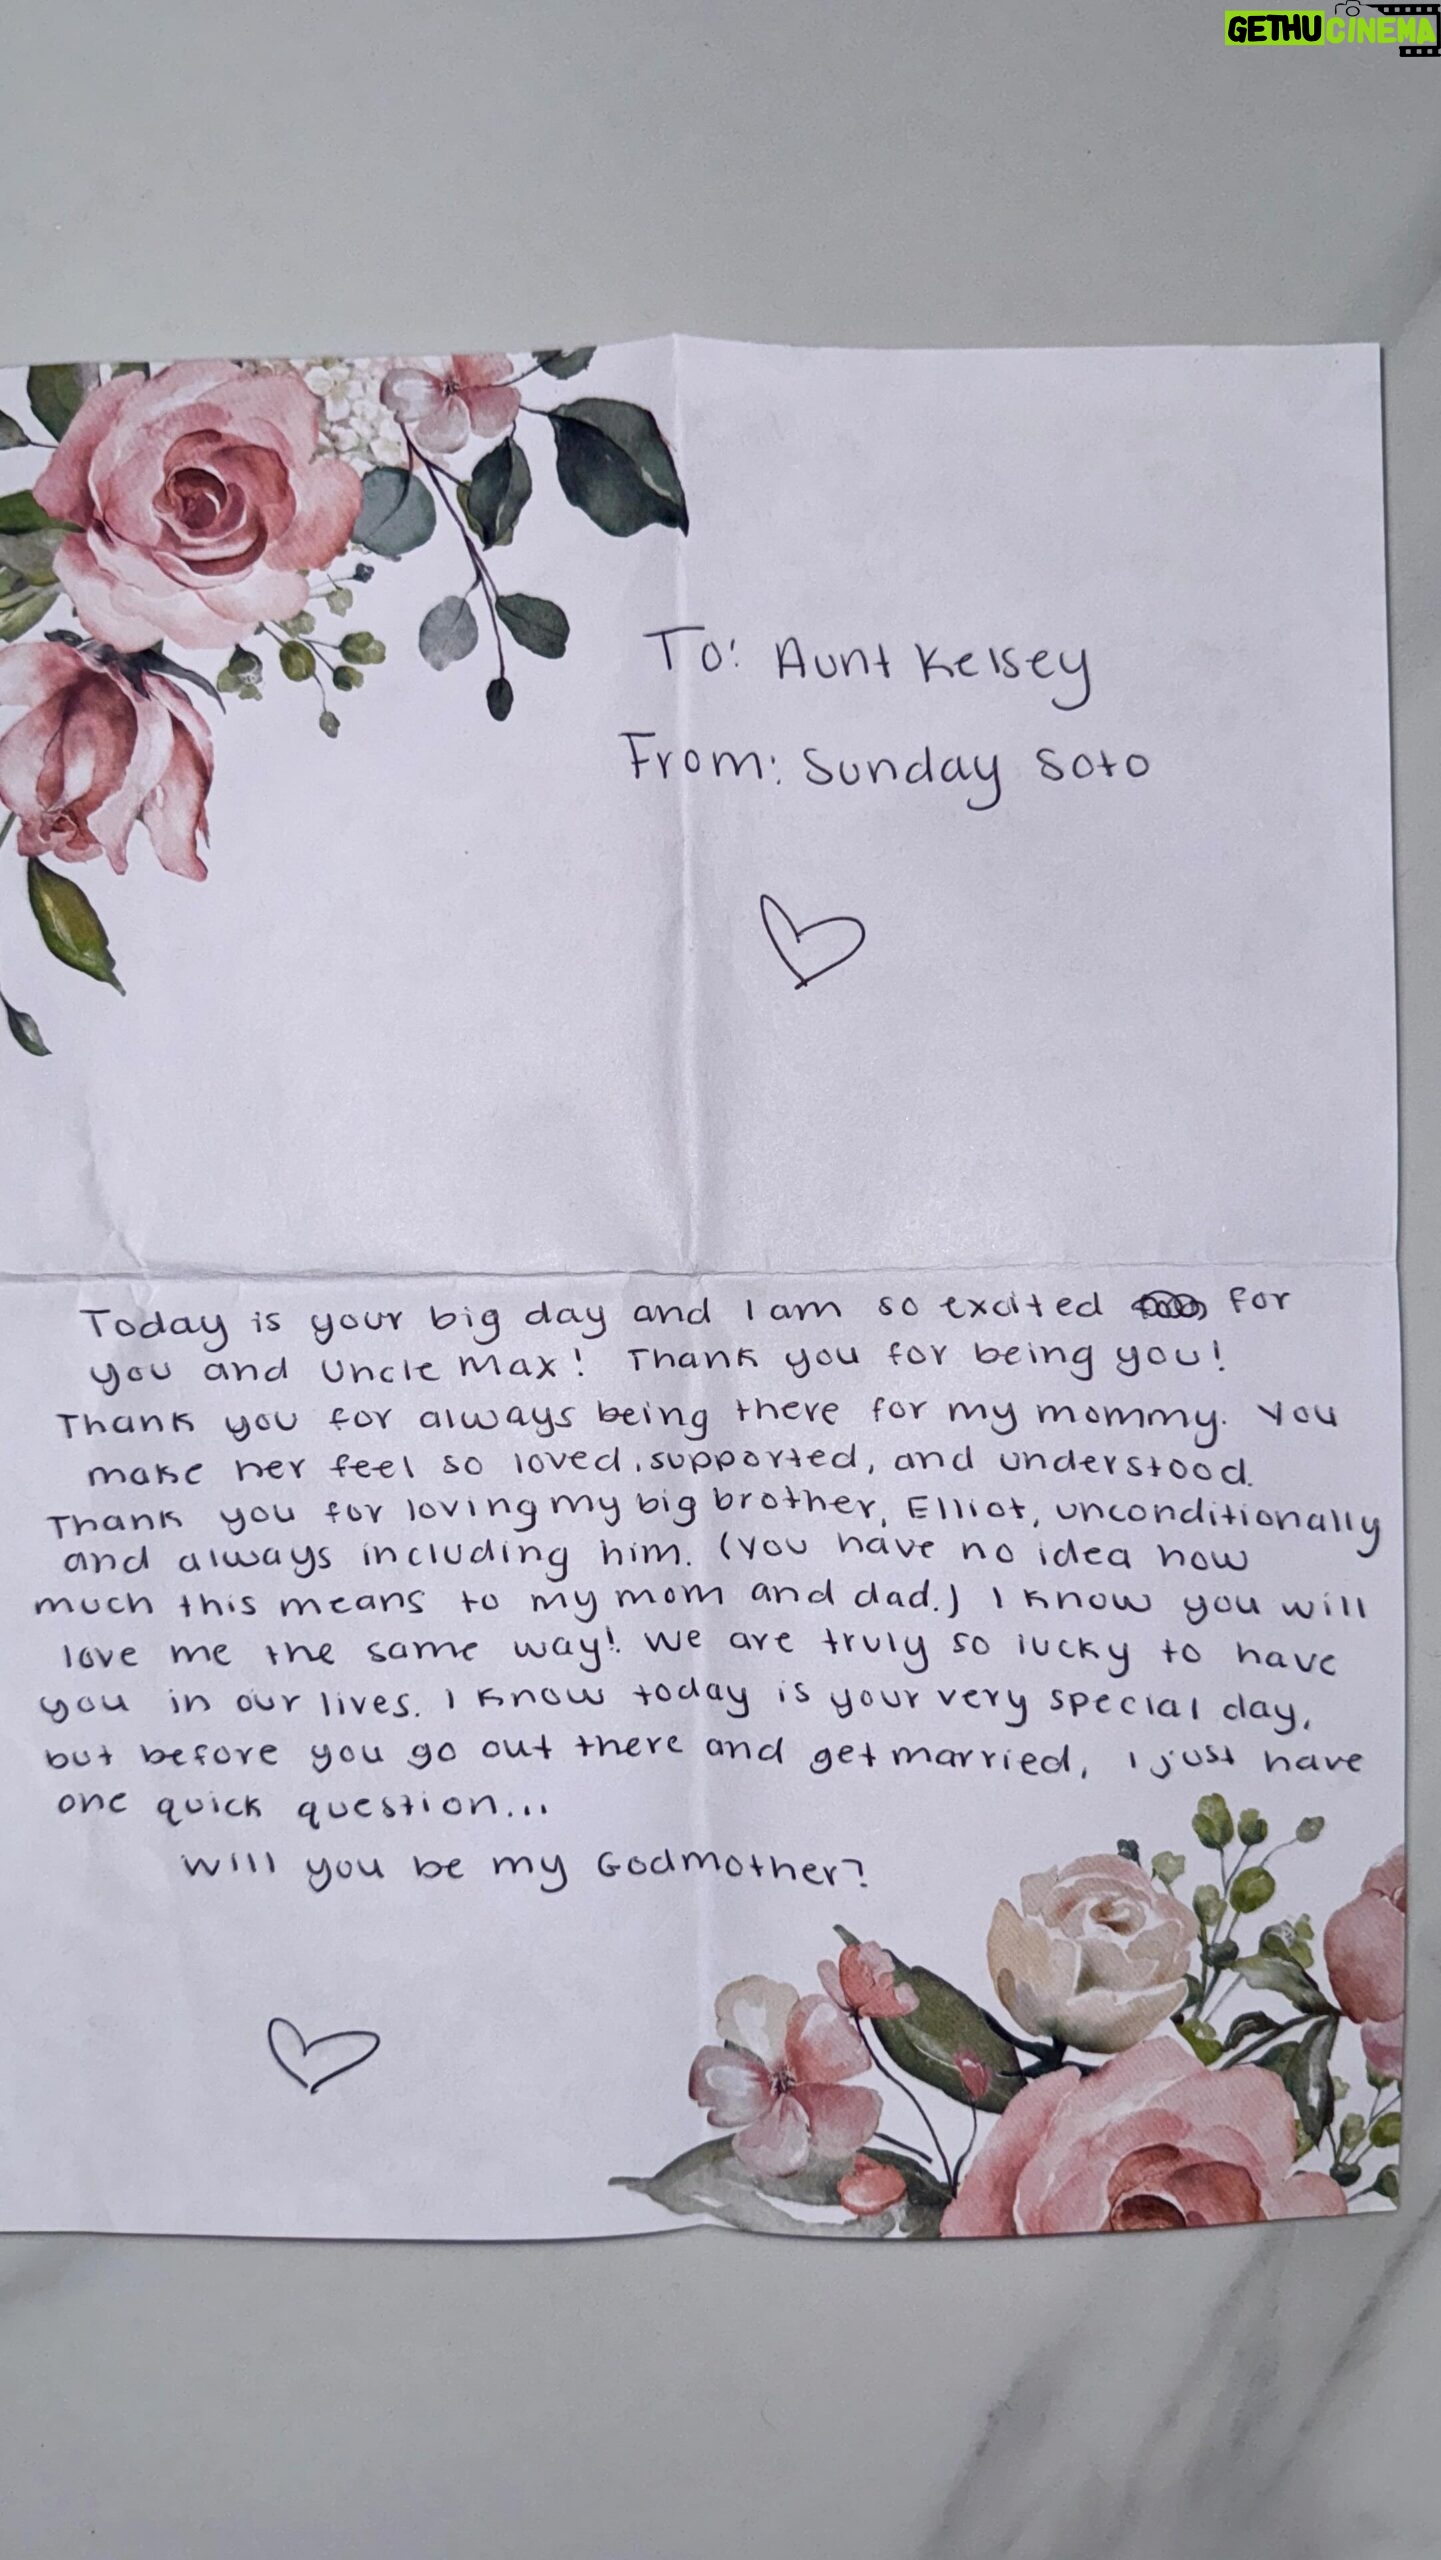 GETHUCINEMA
To: Aunt Kelsey
From: Sunday Soto
Today is your big day and I am so excited for
you and Uncle Max! Thank you for being you!
Thank you for always being there for my mommy. You
make her feel so loved, supported, and understood.
Thank you for loving my big brother, Elliot, unconditionally
and always including him. (You have no idea how
much this means to my mom and dad.) I know you will
love me the same way! We are truly so lucky to have
you in our lives. I know today is your very special day,
but before you go out there and get married, I just have
one quick question...
Will you be my Godmother?